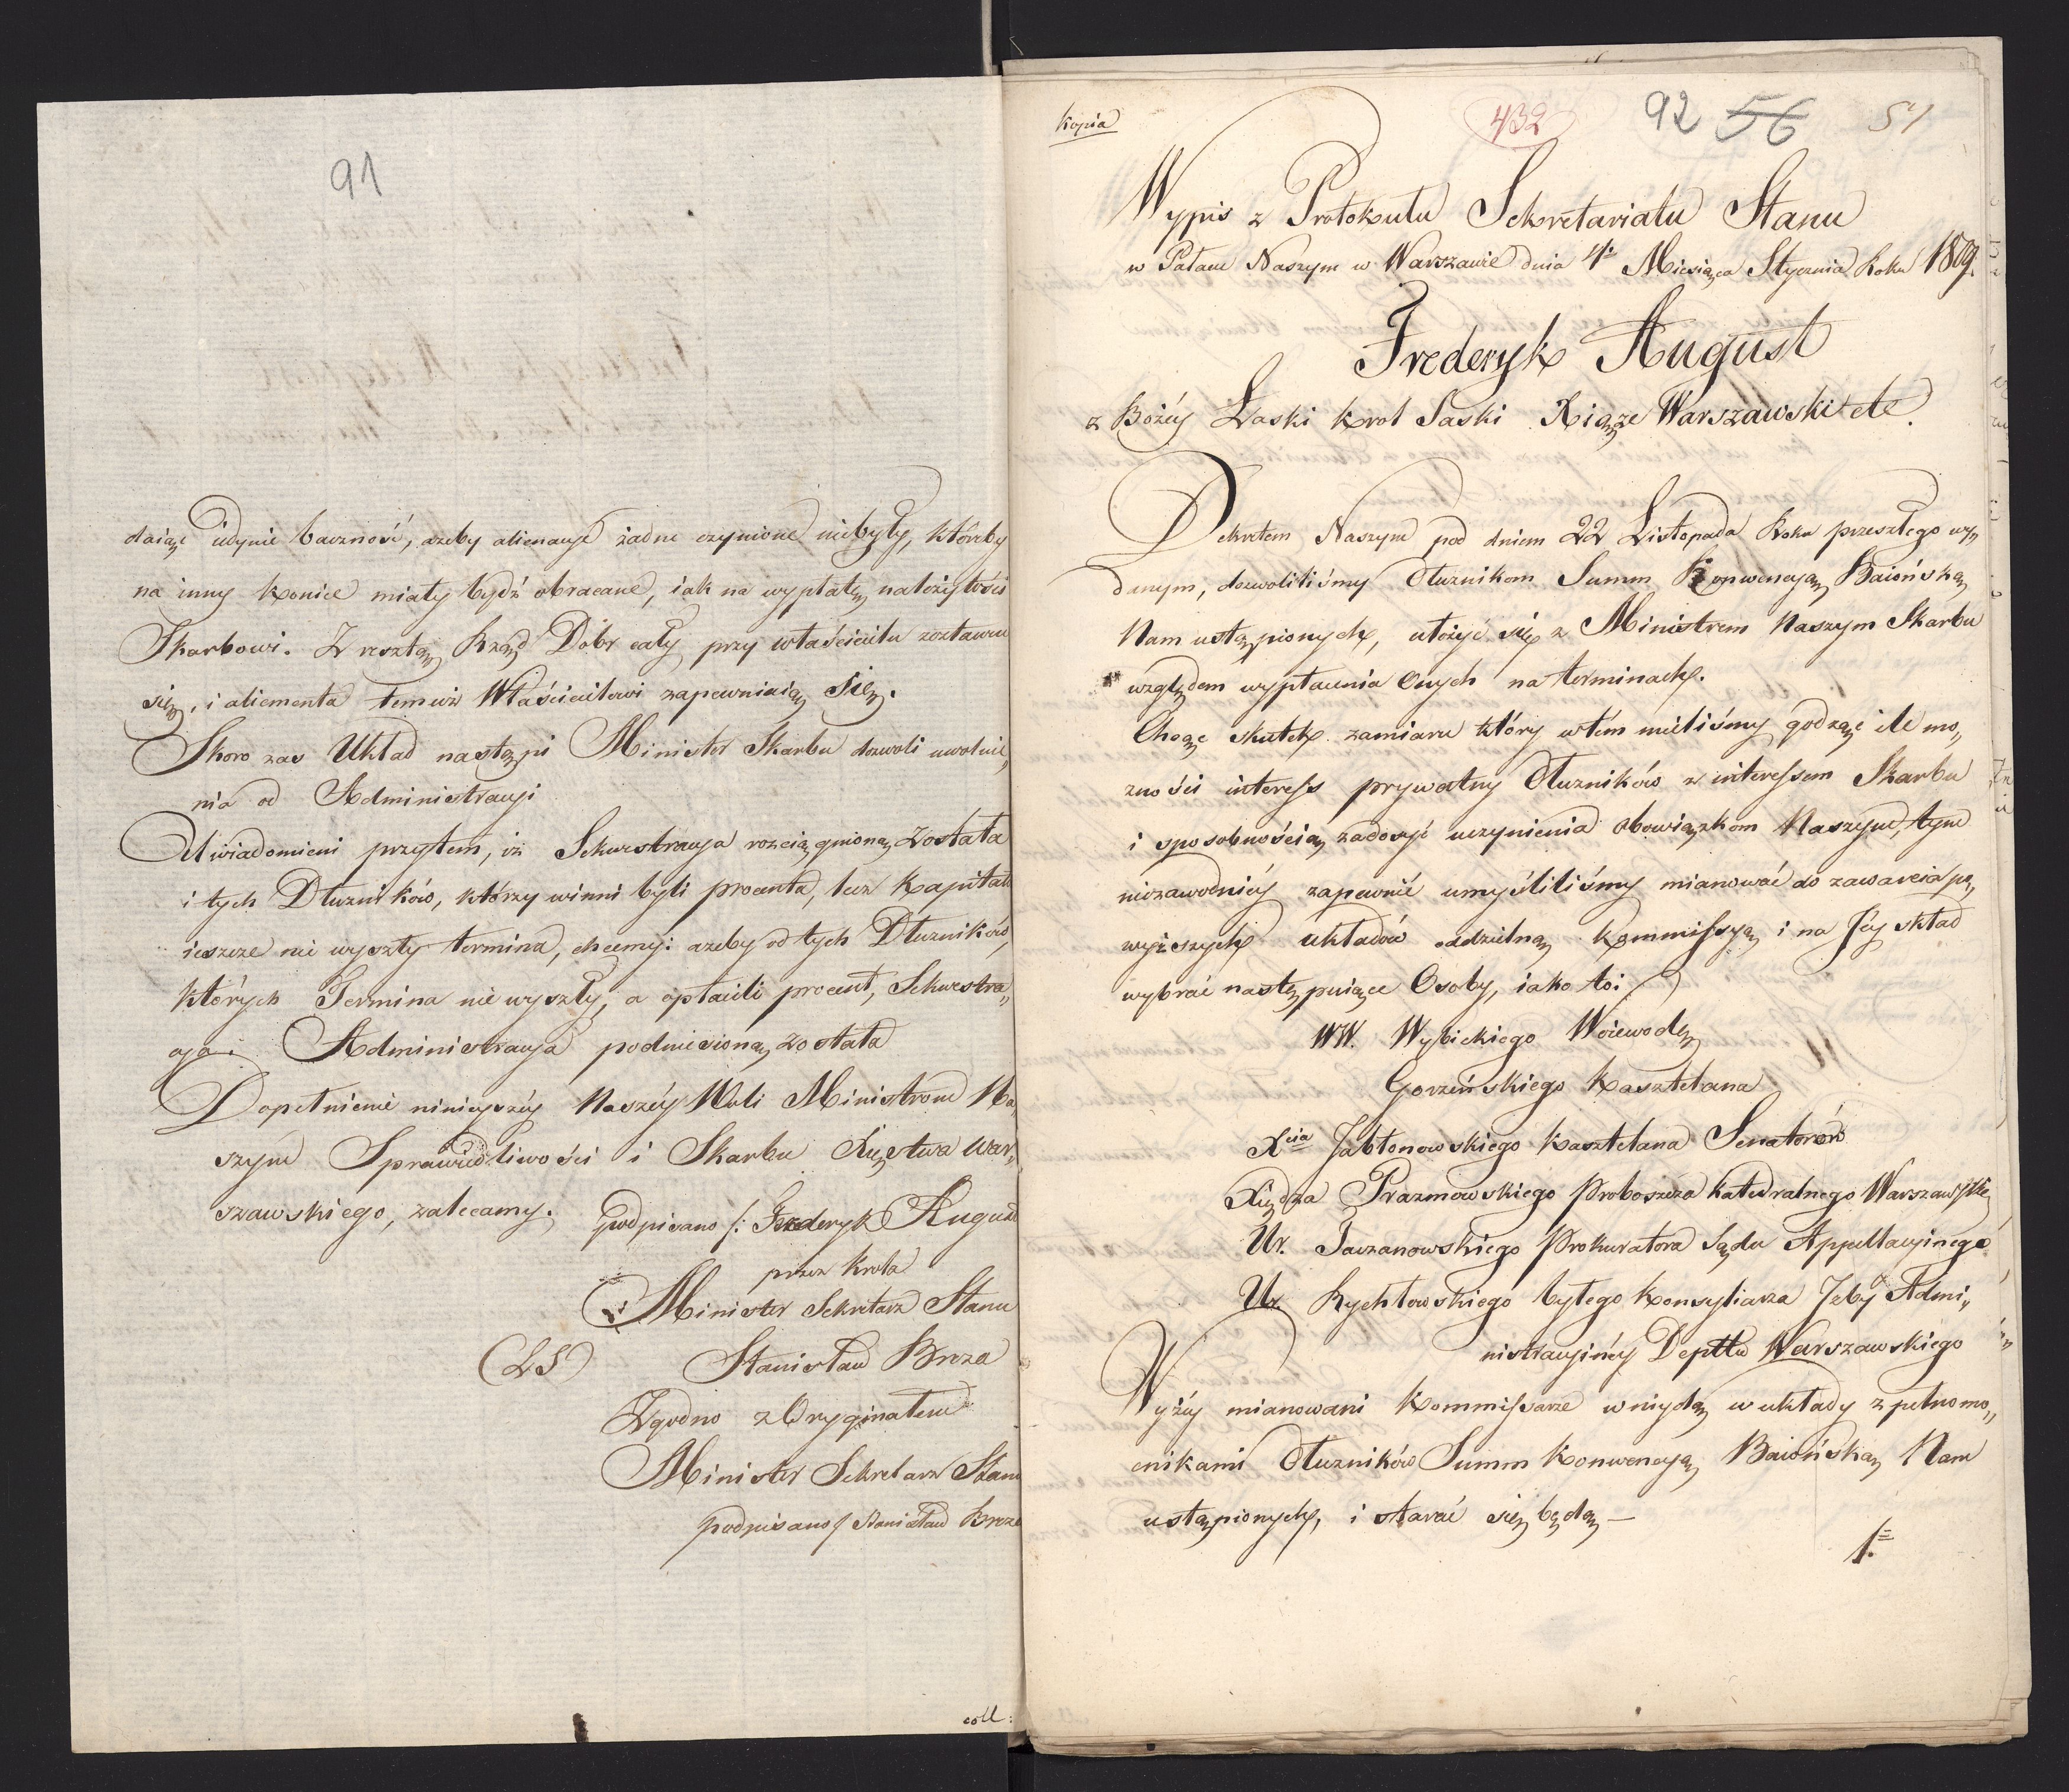 91
daiąc iedynie baczność, azeby alienacye żadne czynione niebyły, któreby
na inny koniec miały bydź obracane, iak na wypłatę należytości
Skarbowi. Z resztą Rząd Dóbr cały przy właścicielu zostawia
się, i alimenta temuż Właścicielowi zapewniaią się.
Skoro zas Układ nastąpi Minister Skarbu dozwoli uwolnie„
nia od Administracyi
Uwiadomieni przytem, iż Sekwestracya rozciągnioną została
i tych Dłuzników, którzy winni byli procenta, lecz Kapitału
ieszcze nie wyszły termina, chcemy: azeby od tych Dłuzników,
których Termina nie wyszły, a opłacili procent, Sekwestra„
cya i Administracya podniesioną została
Dopełnienie ninieyszéy Naszéy Woli Ministrom Na
szym Sprawiedliwości i Skarbu Xięstwa War„
szawskiego, zalecamy.
podpisano /: Frederyk August
przez Krola
Minister Sekretarz Stanu
(LS) Stanisław Breza
Zgodno z Oryginałem
Minister Sekretarz Stanu
podpisano / Stanisław Breza
coll:
kopia
432 92 56 51
Wypis z Protokułu Sekretariatu Stanu
w Pałacu Naszym w Warszawie dnia 4° Miesiąca Stycznia Roku 1809.
Frederyk August
z Bożéy Łaski Krol Saski Xiąże Warszawski etc.
Dekretem Naszym pod dniem 22 Listopada Roku przeszłego wy„
danym, dozwoliliśmy Dłuznikom Summ Konwencyą Baiońską
Nam ustąpionych, ułożyć się z Ministrem Naszym Skarbu
względem wypłacenia Onych na terminach.
Chcąc skutek zamiaru który wtém mieliśmy godząc ile mo„
zności interess prywatny Dłuzników z interessem Skarbu
i sposobnością zadosyć uczynienia obowiązkom Naszym, tym
niezawodniéy zapewnić umyśliliśmy mianować do zawarcia po„
wyższych układów oddzielną Kommissyą, i na Jéy skład
wybrać następuiące Osoby, iako to:
WW. Wybickiego Woiewodę
Gorzeńskiego Kasztelana
Xcia Jabłonowskiego Kasztelana Senatorów
Xiędza Prazmowskiego Proboszcza Katedralnego Warszawskie
Ur. Taczanowskiego Prokuratora Sądu Appellacyinego
Ur. Rychłowskiego byłego Konsyliarza Izby Admi„
nistracyinéy Depttu Warszawskiego
Wyżéy mianowani Kommissarze wniydą w układy z pełnomo„
cnikami Dłuzników Summ Konwencyą Baiońską Nam
ustąpionych, i starać się będą —
1.=